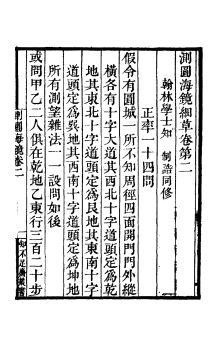 測圓海鏡細草卷第二
翰林學士知 制誥同修
正率一十四問
假令有圓城一所不知周徑四面開門門外縱
橫各有十字大道其西北十字道頭定為乾
地其東北十字道頭定為艮地其東南十字
道頭定為巽地其西南十字道頭定為坤地
所有測望雜法一一設問如後
或問甲乙二人俱在乾地乙東行三百二十步
測圓海鏡卷二
知不足齋叢書